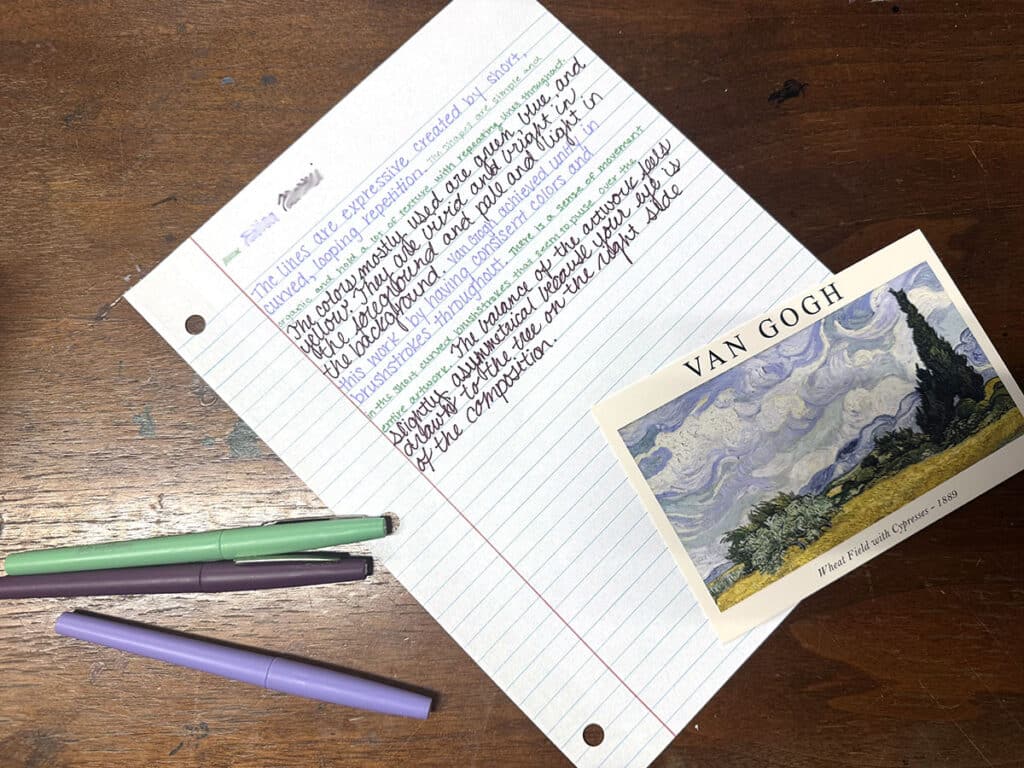 The lines are expressive created by short,
curved, looping repetition. The shapes are simple and
organic and hold a lot of texture with repeating lines throughout.
The colors mostly used are green, blue, and
yellow. They are vivid and bright in
the foreground and pale and light in
the background. Van Gogh achieved unity in
this work by having consistent colors and
brushstrokes throughout. There is a sense of movement
in the short curved brushstrokes that seem to pulse over the
entire artwork. The balance of the artwork feels
slightly asymmetrical because your eye is
drawn to the tree on the right side
of the composition.
VAN GOGH
Wheat Field with Cypresses - 1889